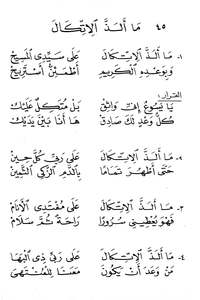 ٤٥ مَا أَلَذَّ الاِتِّكَالَ
١- مَا أَلَذَّ الاِتِّكَالَ عَلَى سَيِّدِي الْمَسِيحْ
وَبِوَعْدِهِ الْكَرِيمِ أَطْمَئِنُّ أَسْتَرِيحْ
القرار:
يَا يَسُوعُ إِنِّي وَاثِقٌ بَلْ مُتَّكِلٌ عَلَيْكْ
كُلُّ وَعْدٍ لَكَ صَادِقٌ هَا أَنَا بَيْنَ يَدَيْكْ
٢- مَا أَلَذَّ الاِتِّكَالَ عَلَى رَبِّي كُلَّ حِينْ
حَتَّى أَطْهُرَ تَمَامًا بِالدَّمِ الزَّكِي الثَّمِينْ
٣- مَا أَلَذَّ الاِتِّكَالَ عَلَى مُفْتَدِي الأَنَامْ
فَهْوَ يُعْطِينِي سُرُورًا رَاحَةً ثُمَّ سَلاَمْ
٤- مَا أَلَذَّ الاِتِّكَالَ عَلَى رَبِّي ذِي الْبَهَا
مَنْ وَعَدْ أَنْ يَكُونَ مَعَنَا لِلْمُنْتَهَى